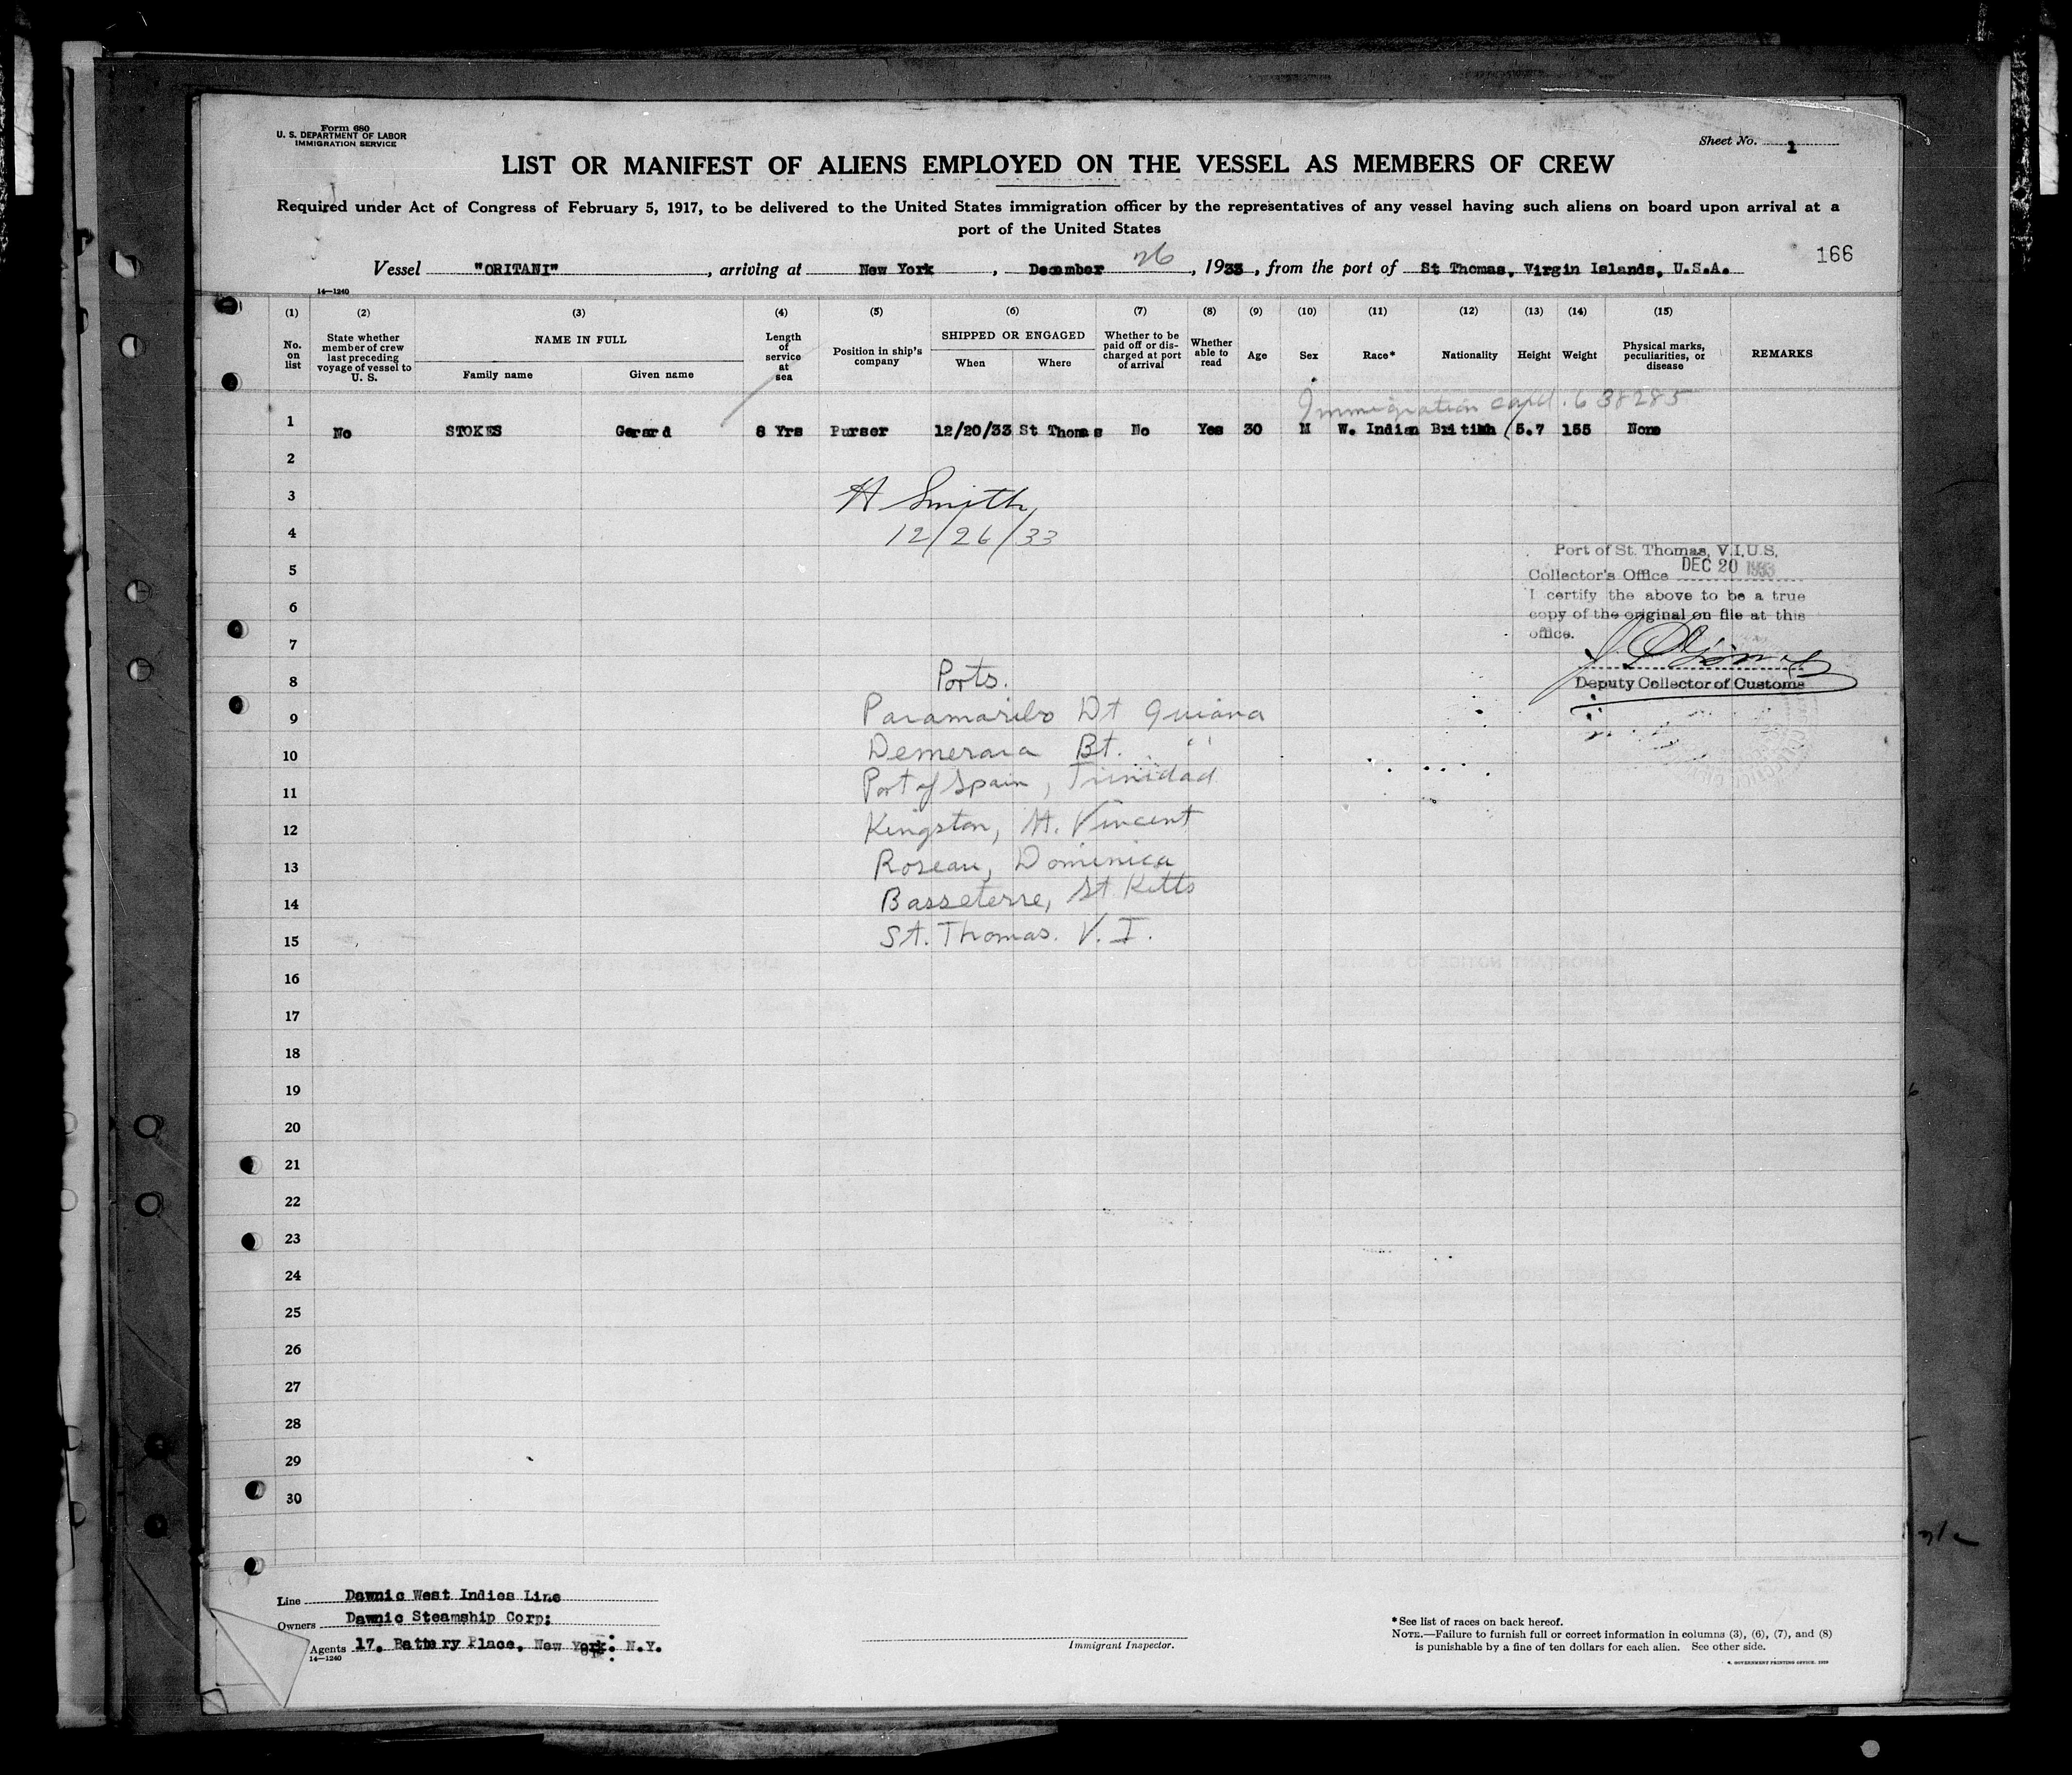 Form 680
U. S. DEPARTMENT OF LABOR
IMMIGRATION SERVICE
Sheet No. 1
LIST OR MANIFEST OF ALIENS EMPLOYED ON THE VESSEL AS MEMBERS OF CREW
Required under Act of Congress of February 5, 1917, to be delivered to the United States immigration officer by the representatives of any vessel having such aliens on board upon arrival at a
port of the United States
166
Vessel "ORITANI", arriving at New York, December 26, 1933, from the port of St Thomas, Virgin Islands, U.S.A.
14—1240
(1) (2) (3) (4) (5) (6) (7) (8) (9) (10) (11) (12) (13) (14) (15)
No. on list
State whether member of crew last preceding voyage of vessel to U. S.
NAME IN FULL
Family name
Given name
Length of service at sea
Position in ship's company
SHIPPED OR ENGAGED
When
Where
Whether to be paid off or discharged at port of arrival
Whether able to read
Age
Sex
Race*
Nationality
Height
Weight
Physical marks, peculiarities, or disease
REMARKS
Immigration card. 638285
1 No STOKES Gerard 8 Yrs Purser 12/20/33 St Thomas No Yes 30 M W. Indian British 5.7 155 None
2
3 H Smith
4 12/26/33
Port of St. Thomas, V.I.U.S.
5
Collector's Office DEC 20 1933
I certify the above to be a true
6
copy of the original on file at this
office.
7
8 Ports.
Deputy Collector of Customs
9 Paramaribo Dt Guiana
10 Demerara Bt. "
11 Port of Spain, Trinidad
12 Kingston, St. Vincent
13 Roseau, Dominica
14 Basseterre, St Kitts
15 St. Thomas. V. I.
16
17
18
19
20
21
22
23
24
25
26
27
28
29
30
Line Dawnic West Indies Line
Owners Dawnic Steamship Corp;
Agents 17. Battery Place, New York: N.Y.
14—1240
Immigrant Inspector.
*See list of races on back hereof.
NOTE.—Failure to furnish full or correct information in columns (3), (6), (7), and (8)
is punishable by a fine of ten dollars for each alien. See other side.
GOVERNMENT PRINTING OFFICE